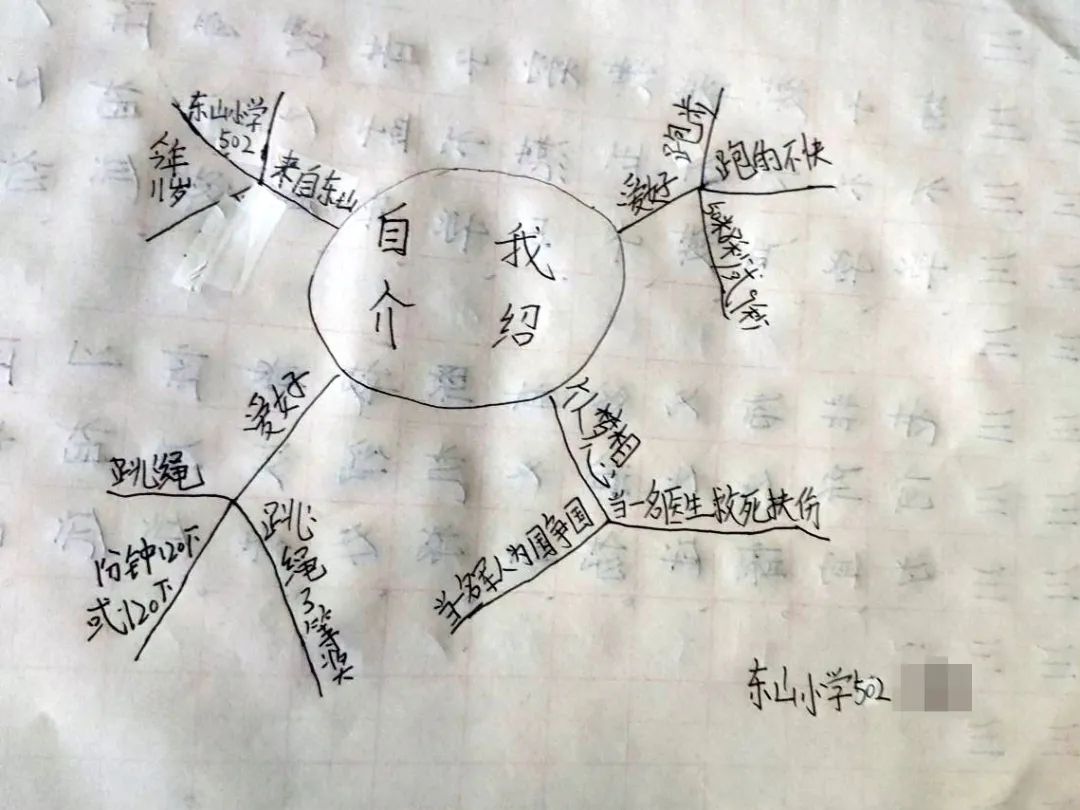 自我
介绍
来自东山
东山小学
502
今年
11岁
爱好
跑步
跑的不快
爱好
跳绳
1分钟120下
或120下
跳绳3等奖
个人梦想
当一名医生救死扶份
当一名军人为国争国
东山小学502